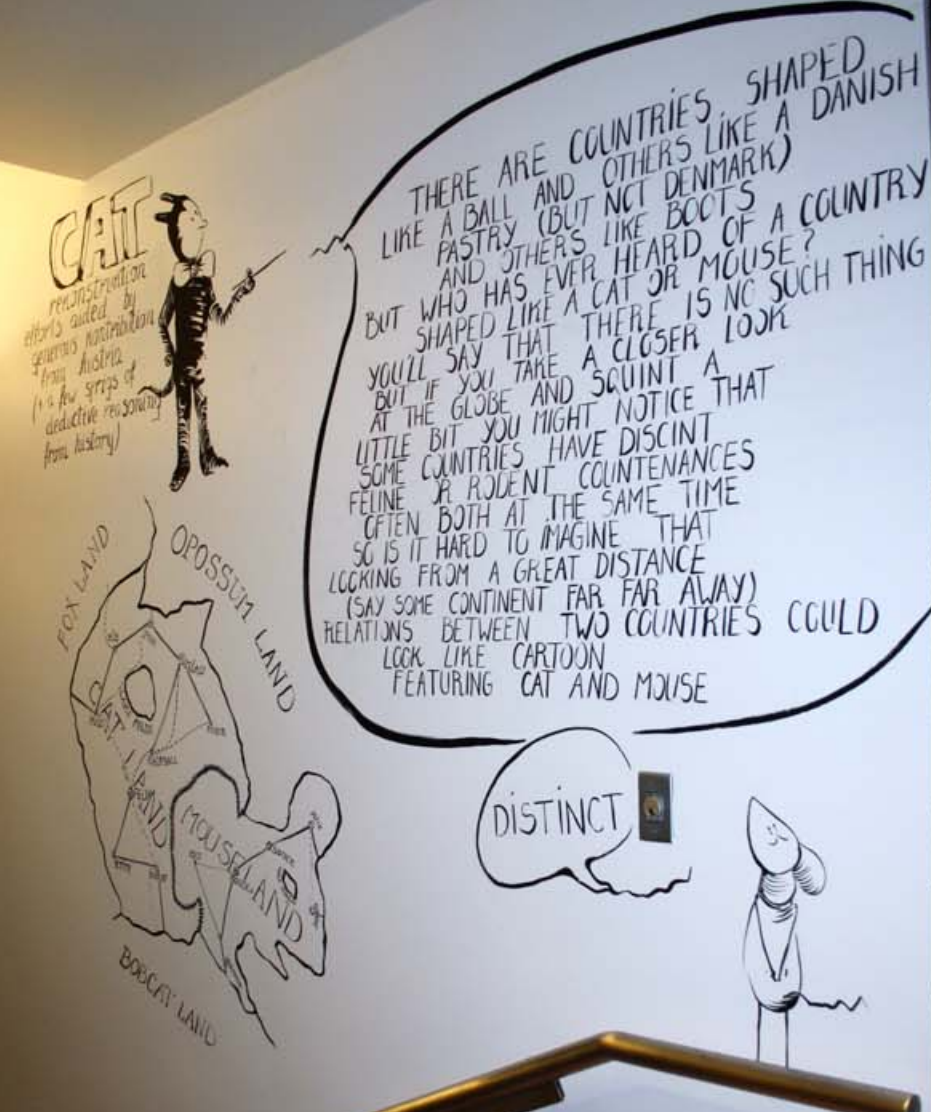 CAT
reconstruction
efforts aided by
generous contribution
from Austria
(+ a few sprigs of
deductive reasoning
from history)
THERE ARE COUNTRIES SHAPED
LIKE A BALL AND OTHERS LIKE A DANISH
PASTRY (BUT NOT DENMARK)
AND OTHERS LIKE BOOTS
BUT WHO HAS EVER HEARD OF A COUNTRY
SHAPED LIKE A CAT OR MOUSE?
YOU'LL SAY THAT THERE IS NO SUCH THING
BUT IF YOU TAKE A CLOSER LOOK
AT THE GLOBE AND SQUINT A
LITTLE BIT YOU MIGHT NOTICE THAT
SOME COUNTRIES HAVE DISCINT
FELINE OR RODENT COUNTENANCES
OFTEN BOTH AT THE SAME TIME
SO IS IT HARD TO IMAGINE THAT
LOOKING FROM A GREAT DISTANCE
(SAY SOME CONTINENT FAR FAR AWAY)
RELATIONS BETWEEN TWO COUNTRIES COULD
LOOK LIKE CARTOON
FEATURING CAT AND MOUSE
DISTINCT
FOX LAND
OPOSSUM LAND
CAT LAND
MOUSELAND
BOBCAT LAND